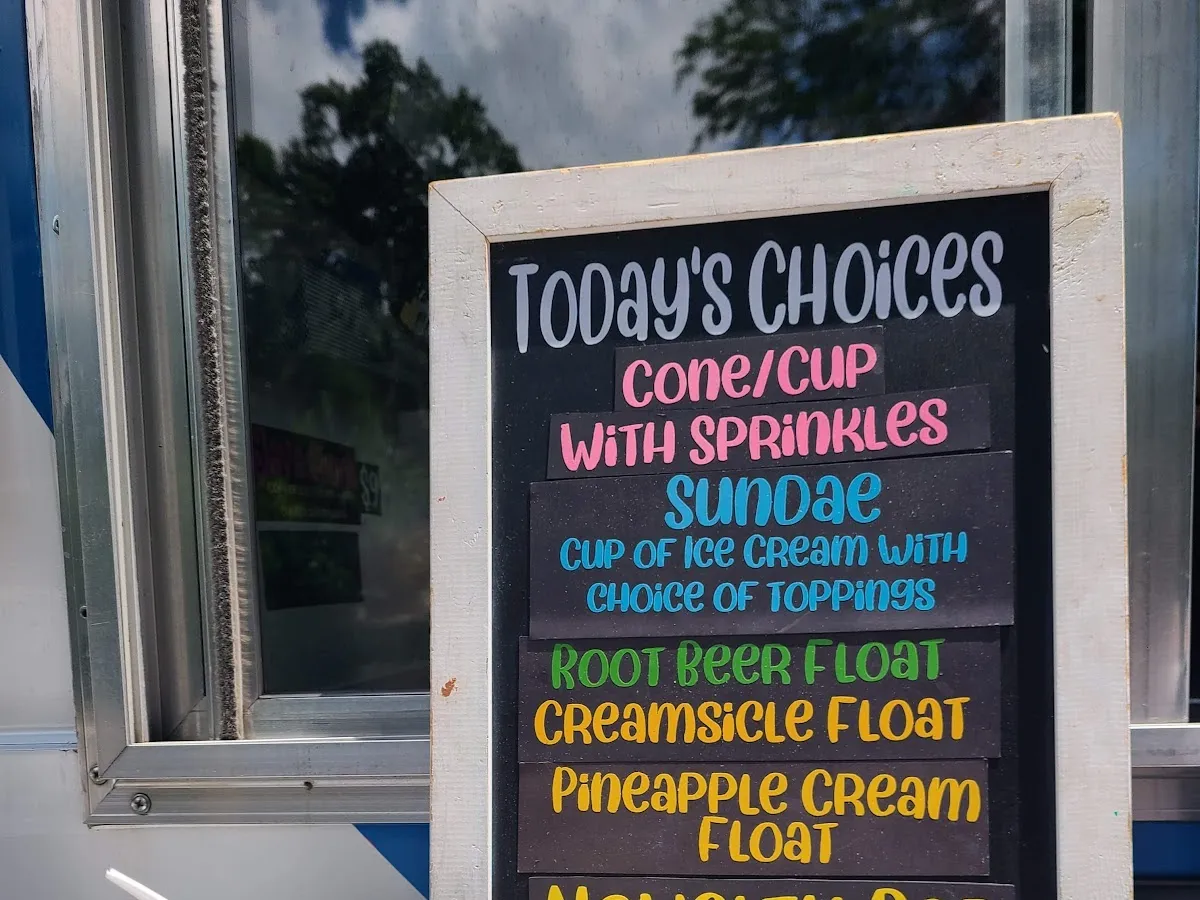 Today's Choices
Cone/Cup
with Sprinkles
Sundae
Cup of Ice Cream with
Choice of Toppings
Root Beer Float
Creamsicle Float
Pineapple Cream
Float
$9